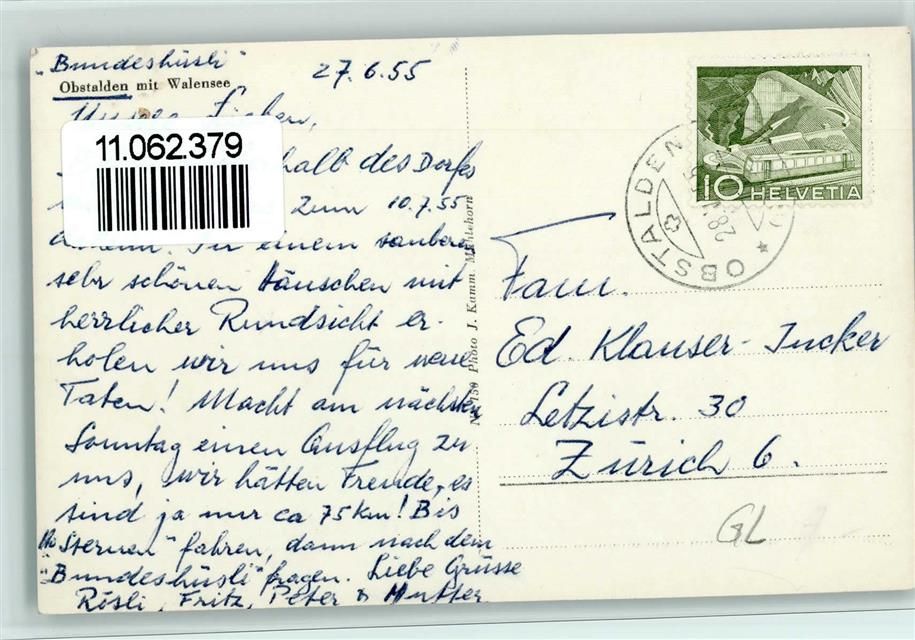 "Bundeshüsli"
27.6.55
Obstalden mit Walensee
Lieben,
11.062.379
halb des Dorfes
zum 10.7.55
In einem saubern,
sehr schönen Häuschen mit
herrlicher Rundsicht er-
holen wir uns für neue
Taten! Macht am nächsten
Sonntag einen Ausflug zu
uns, wir hätten Freude, es
sind ja nur ca 75 km! Bis
"Sternen" fahren, dann nach dem
"Bundeshüsli" fragen. Liebe Grüsse
Rösli, Fritz, Peter & Mutter
Photo J. Kamm, Mühlehorn
10 HELVETIA
OBSTALDEN
28
Fam.
Ed. Klauser-Jucker
Letzistr. 30
Zürich 6.
GL